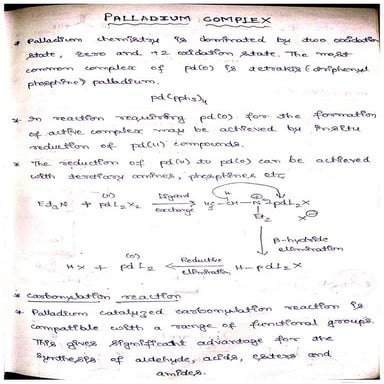 PALLADIUM COMPLEX
* Palladium chemistry is dominated by two oxidation
state, zero and +2 oxidation state. The most
common complex of pd(0) is tetrakis (triphenyl
phosphine) palladium.
pd(pph3)4
* In reaction requiring pd(0) for the formation
of active complex may be achieved by insitu
reduction of pd(II) compounds.
* The reduction of pd(II) to pd(0) can be achieved
with tertiary amines, phosphines etc
Et3N + pd(II)L2X2 Ligand exchange H3C-CH-N-pdL2X
H ⊕ Et2 X⊖
β-hydride
elimination
HX + pd(0)L2 Reductive elimination H-pdL2X
* Carbonylation reaction
* Palladium catalyzed carbonylation reaction is
compatible with a range of functional groups.
This gives significant advantage for the
synthesis of aldehyde, acids, esters and
amides.